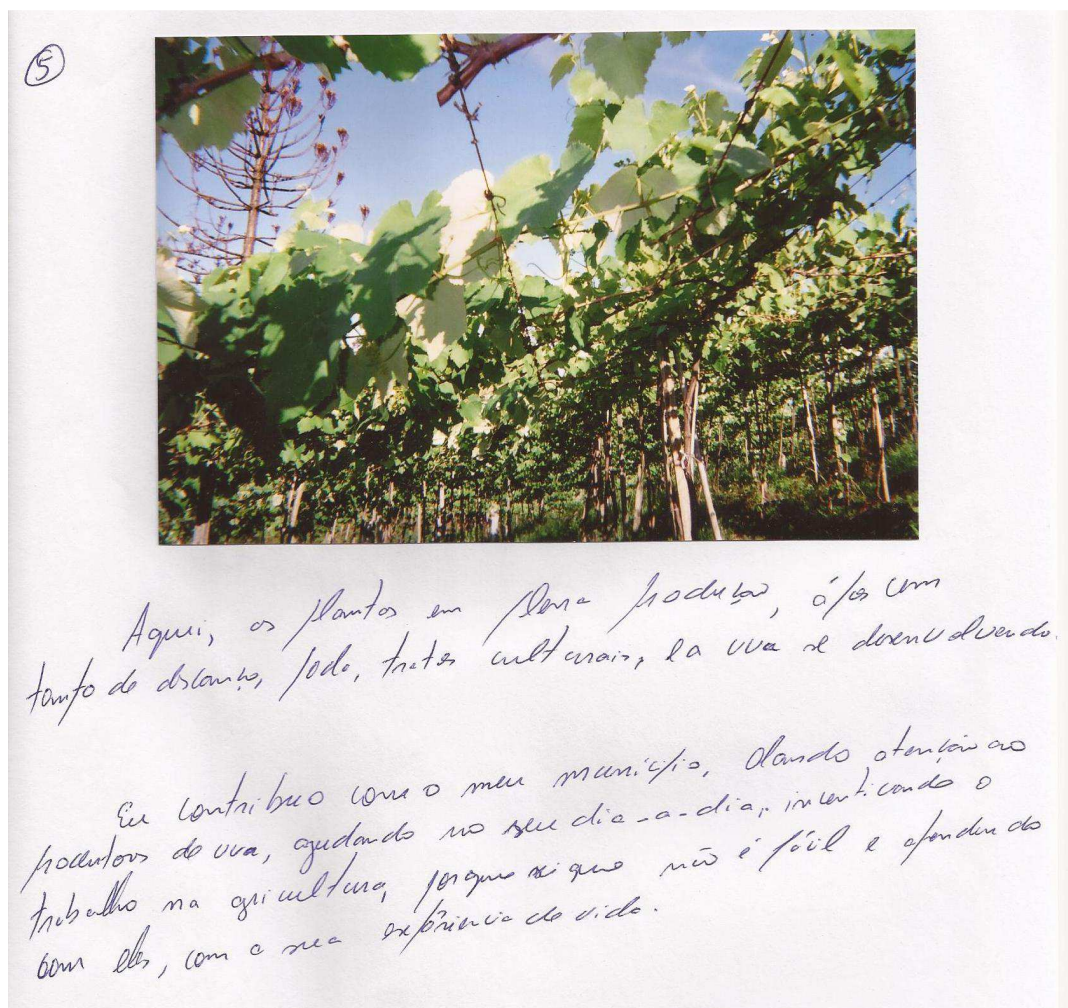 5
Aqui, as plantas em plena produção, após um
tempo de descanso, poda, tratos culturais, e a uva se desenvolvendo.
Eu contribuo com o meu município, dando atenção ao
produtores de uva, ajudando no seu dia-a-dia, incentivando o
trabalho na agricultura, porque sei que não é fácil e aprendendo
com eles, com a sua experiência de vida.